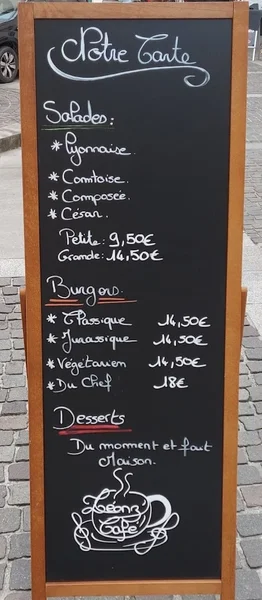 Notre Carte
Salades:
* Lyonnaise.
* Comtoise.
* Composée.
* César.
Petite: 9,50€
Grande: 14,50€
Burgers.
* Classique 14,50€
* Jurassique 14,50€
* Végétarien 14,50€
* Du Chef 18€
Desserts
Du moment et fait
Maison.
Léonz
Café